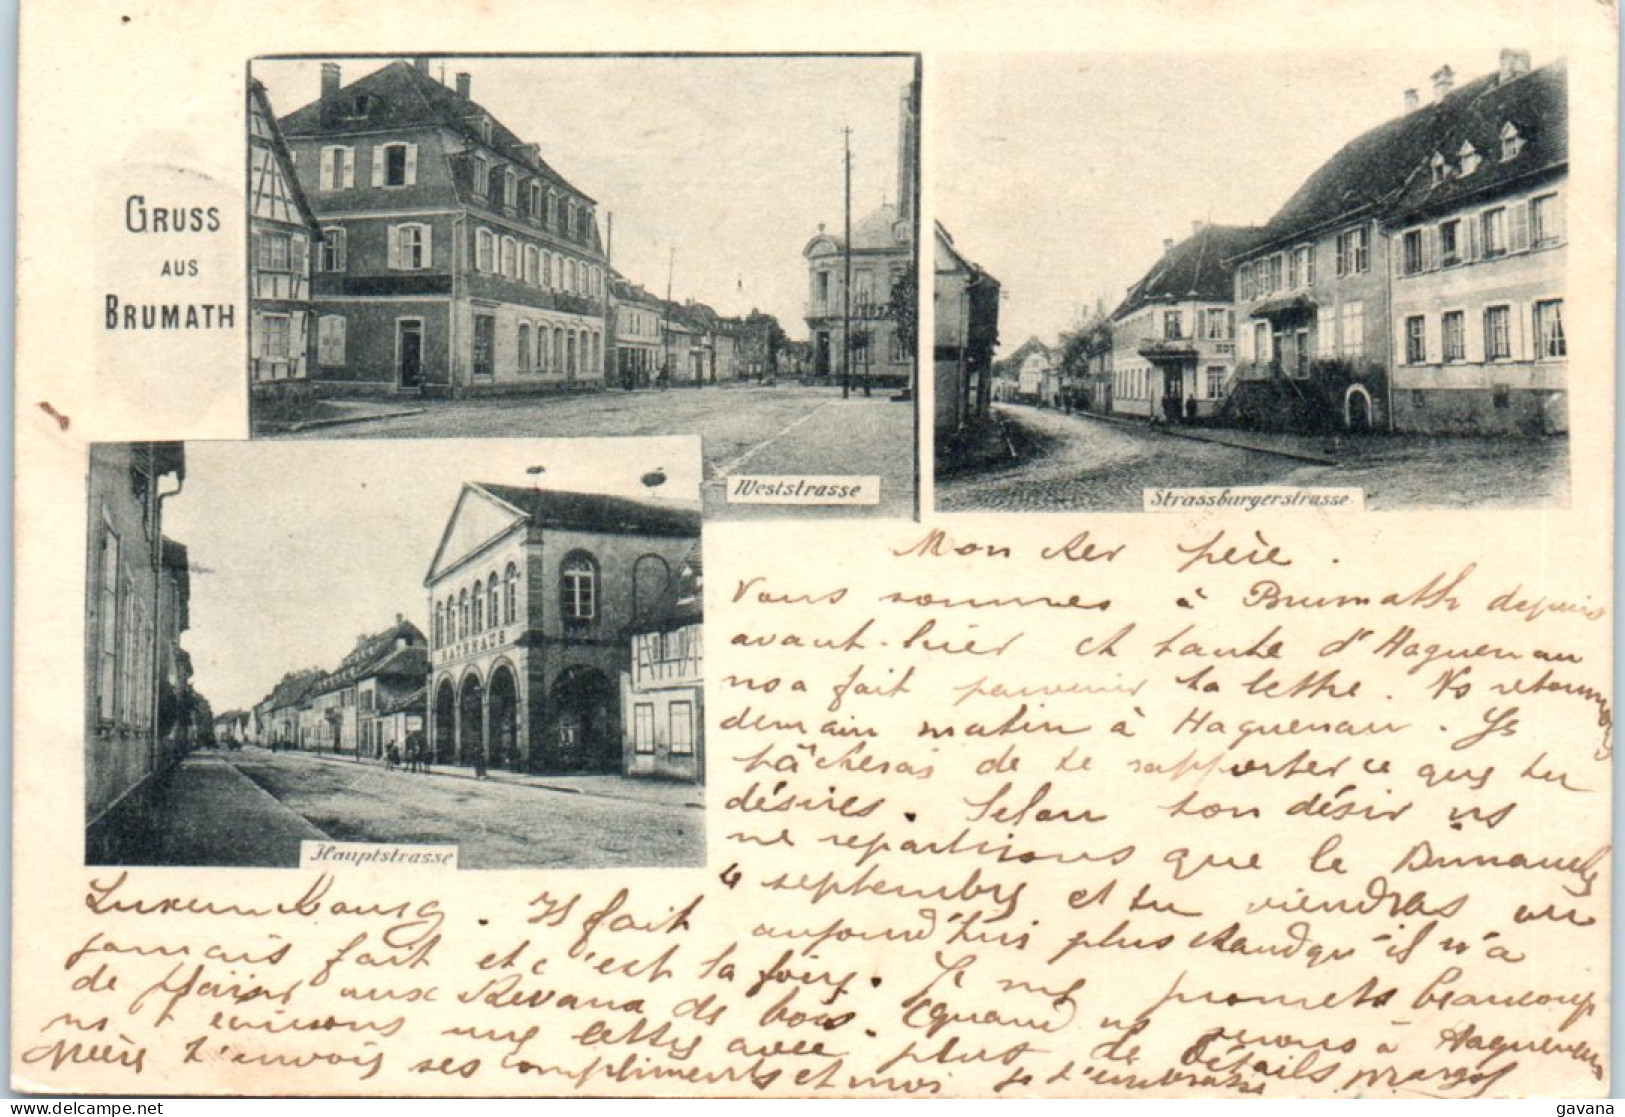 GRUSS
AUS
BRUMATH
Weststrasse
Strassburgerstrasse.
RATHHAUS
Hauptstrasse
Mon cher père.
Nous sommes à Brumath depuis
avant-hier et tante d'Haguenau
ns a fait parvenir ta lettre. Ns retournons
demain matin à Haguenau. Je
tâcherai de te rapporter ce que tu
désires. Selon ton désir ns
ne repartirons que le Dimanche
4 septembre et tu viendras au
Luxembourg. Il fait aujourd'hui plus chaud qu'il n'a
jamais fait et c'est la foire. Je me promets beaucoup
de plaisir aux chevaux de bois. Quand ns serons à Haguenau
ns t'écrirons une lettre avec plus de détails. Margot
Mère t'envoie ses compliments et moi je t'embrasse
gavana